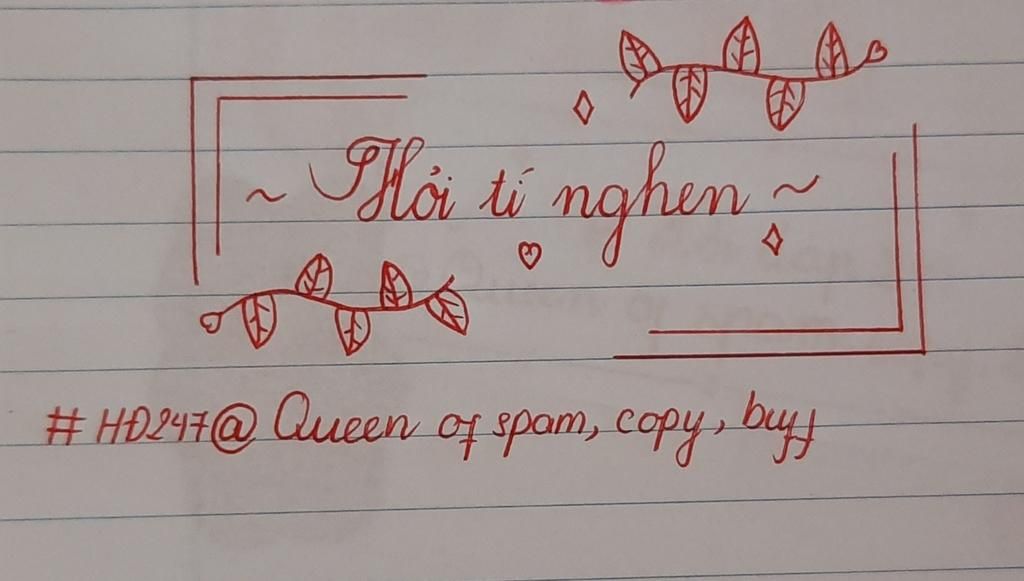 ~ Hỏi tí nghen ~
#HĐ247@ Queen of spam, copy, buff